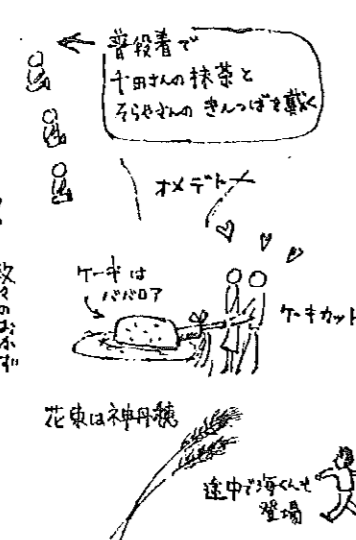 普段着で
千田さんの抹茶と
そらやさんのきんつばを戴く
オメデトー
ケーキは
ババロア
ケーキカット
数々のおかず
花束は神丹穂
途中で海くんも
登場